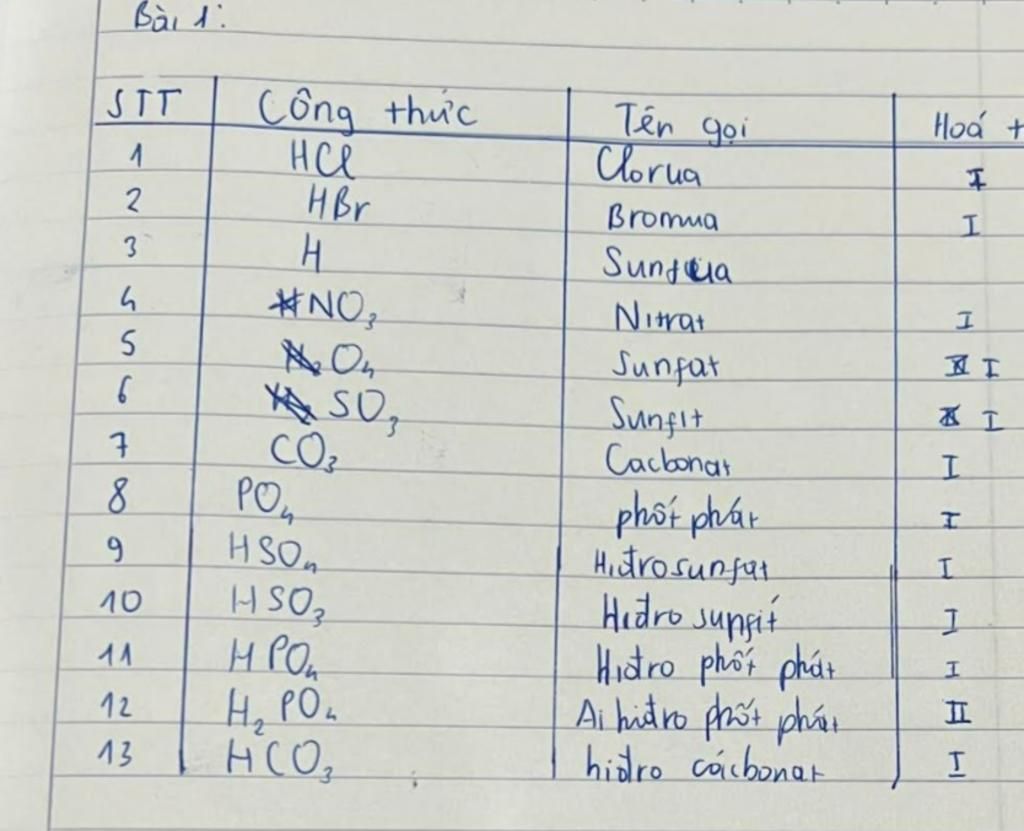 Bài 1:
STT Công thức Tên gọi Hoá t
1 HCl Clorua I
2 HBr Bromua I
3 H Sunfua
4 NO₃ Nitrat I
5 O₄ Sunfat I
6 SO₃ Sunfit I
7 CO₃ Cacbonat I
8 PO₄ phốt phát I
9 HSO₄ Hiđrosunfat I
10 HSO₃ Hiđro sunfit I
11 HPO₄ Hiđro phốt phát I
12 H₂PO₄ Ai hiđro phốt phát II
13 HCO₃ hiđro cácbonat I